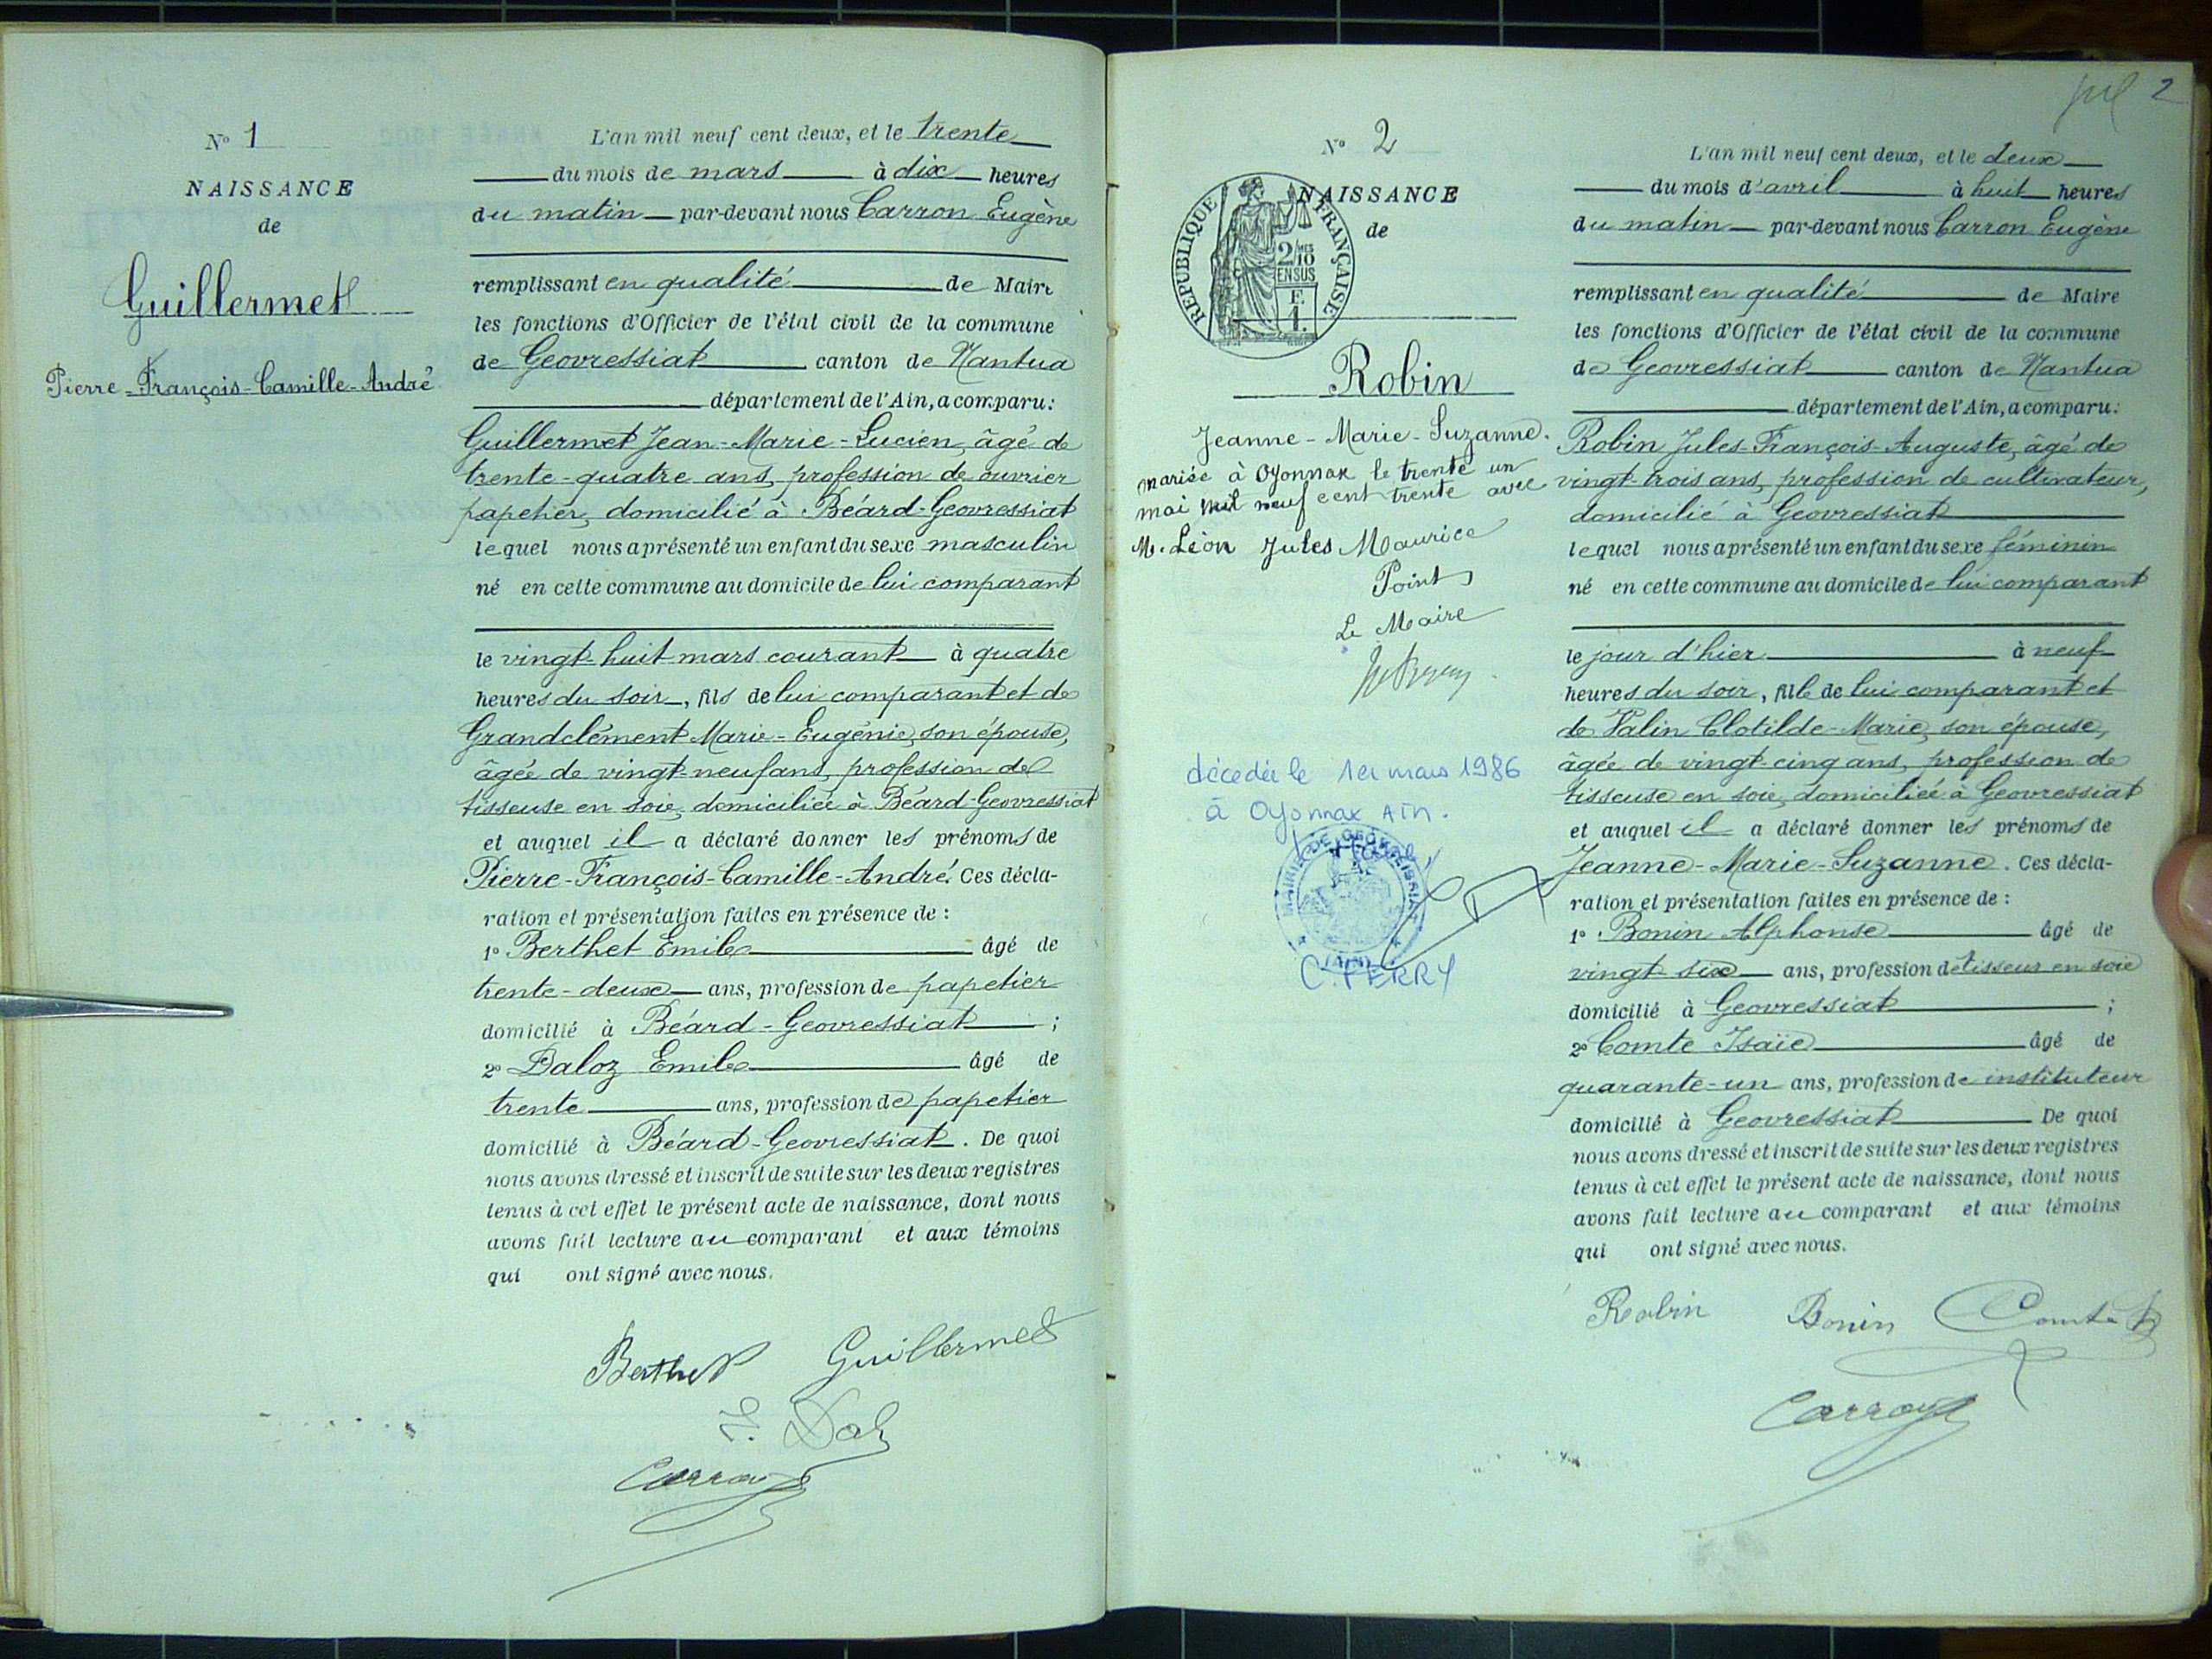 N° 1
NAISSANCE
de
Guillermet
Pierre-François-Camille-André
L'an mil neuf cent deux, et le trente
du mois de mars à dix heures
du matin par-devant nous Carron Eugène
remplissant en qualité de Maire
les fonctions d'Officier de l'état civil de la commune
de Geovressiat canton de Nantua
département de l'Ain, a comparu:
Guillermet Jean-Marie-Lucien, âgé de
trente-quatre ans, profession de ouvrier
papetier, domicilié à Béard-Geovressiat
lequel nous a présenté un enfant du sexe masculin
né en cette commune au domicile de lui comparant
le vingt-huit mars courant à quatre
heures du soir, fils de lui comparant et de
Grandclément Marie-Eugénie, son épouse,
âgée de vingt-neuf ans, profession de
tisseuse en soie, domiciliée à Béard-Geovressiat
et auquel il a déclaré donner les prénoms de
Pierre-François-Camille-André. Ces décla-
ration et présentation faites en présence de :
1° Berthet Emile âgé de
trente-deux ans, profession de papetier
domicilié à Béard-Geovressiat ;
2° Daloz Emile âgé de
trente ans, profession de papetier
domicilié à Béard-Geovressiat. De quoi
nous avons dressé et inscrit de suite sur les deux registres
tenus à cet effet le présent acte de naissance, dont nous
avons fait lecture au comparant et aux témoins
qui ont signé avec nous.
Berthet Guillermet
E. Dalz
Carron
2
N° 2
NAISSANCE
de
REPUBLIQUE FRANÇAISE
2/10
EN SUS
Robin
Jeanne-Marie-Suzanne.
mariée à Oyonnax le trente un
mai mil neuf cent trente avec
M. Léon Jules Maurice
Point
Le Maire
décédée le 1er mars 1986
à Oyonnax Ain.
MAIRIE DE GEOVREISSIAT
(AIN)
C. FERRY
L'an mil neuf cent deux, et le deux
du mois d'avril à huit heures
du matin par-devant nous Carron Eugène
remplissant en qualité de Maire
les fonctions d'Officier de l'état civil de la commune
de Geovressiat canton de Nantua
département de l'Ain, a comparu:
Robin Jules-François-Auguste, âgé de
vingt-trois ans, profession de cultivateur,
domicilié à Geovressiat
lequel nous a présenté un enfant du sexe féminin
né en cette commune au domicile de lui comparant
le jour d'hier à neuf
heures du soir, fille de lui comparant et
de Valin Clotilde-Marie, son épouse,
âgée de vingt-cinq ans, profession de
tisseuse en soie, domiciliée à Geovressiat
et auquel il a déclaré donner les prénoms de
Jeanne-Marie-Suzanne. Ces décla-
ration et présentation faites en présence de :
1° Bonin Alphonse âgé de
vingt-six ans, profession de tisseur en soie
domicilié à Geovressiat ;
2° Comte Isaïe âgé de
quarante-un ans, profession de instituteur
domicilié à Geovressiat De quoi
nous avons dressé et inscrit de suite sur les deux registres
tenus à cet effet le présent acte de naissance, dont nous
avons fait lecture au comparant et aux témoins
qui ont signé avec nous.
Robin Bonin Comte
Carron